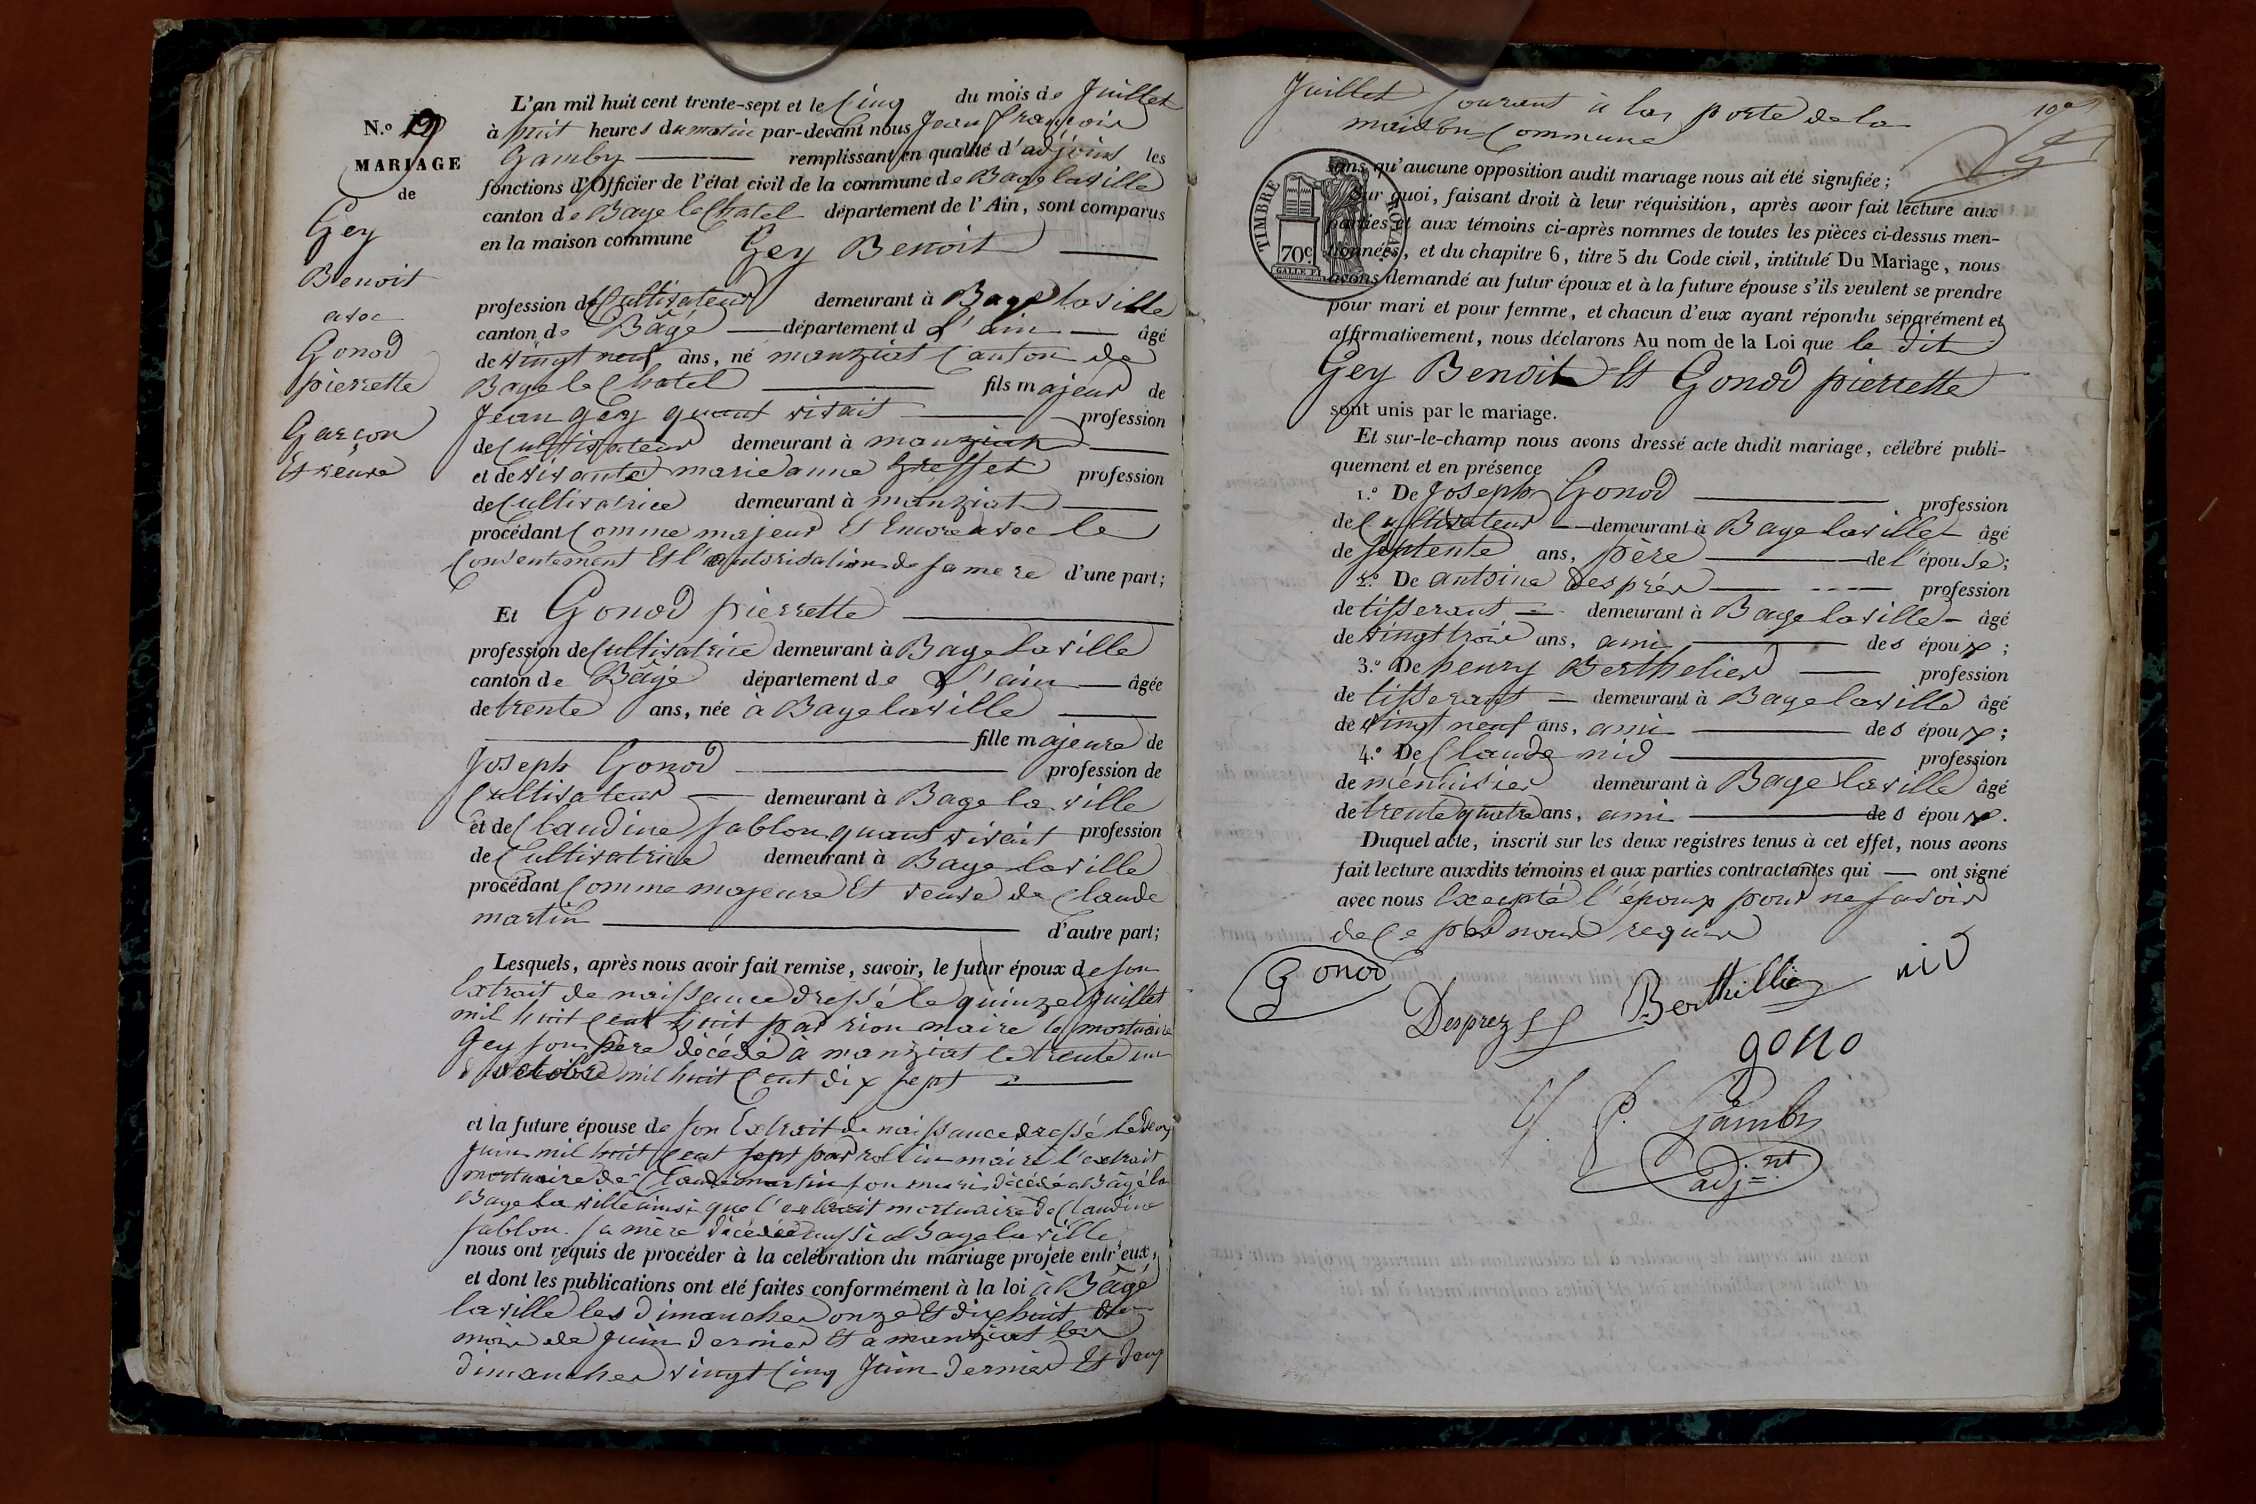 N.o 19
MARIAGE
de
Gey
Benoit
avec
Gonod
pierrette
Garçon
Et veuve
L'an mil huit cent trente-sept et le Cinq du mois de Juillet
à huit heures du matin par-devant nous Jean françois
Gamby remplissant en qualité d'adjoint les
fonctions d'Officier de l'état civil de la commune de Bage laville
canton de Bage le Chatel département de l'Ain, sont comparus
en la maison commune Gey Benoit
profession de Cultivateur demeurant à Bagé laville
canton de Bagé département d L'ain âgé
de vingt neuf ans, né manziat Canton de
Bage le Chatel fils majeur de
Jean gey quant vivait profession
de Cultivateur demeurant à manziat
et de vivante marie anne Greffet profession
de Cultivatrice demeurant à manziat
procédant Comme majeur Et Encore avec le
Consentement Et l'autorisation de sa mere d'une part;
Et Gonod pierrette
profession de Cultivatrice demeurant à Bage laville
canton de Bagé département de L'ain âgée
de trente ans, née à Bage laville
fille majeure de
Joseph Gonod profession de
Cultivateur demeurant à Bage la ville
et de Claudine sablon quant vivait profession
de Cultivatrice demeurant à Bage laville
procédant Comme majeure Et veuve de Claude
martin d'autre part;
Lesquels, après nous avoir fait remise, savoir, le futur époux de son
Extrait de naissance dressé le quinze Juillet
mil huit Cent huit par rion maire le mortuaire
Gey son père décédé à manziat le trente un
octobre mil huit Cent dix sept
et la future épouse de son Extrait de naissance dressé le deux
Juin mil huit Cent sept par rollin maire l'extrait
mortuaire de Claude martin son mari décédé a Bagé la
Bage la ville ainsi que l'extrait mortuaire de Claudine
sablon sa mère décédée aussi a Bage la ville
nous ont requis de procéder à la celébration du mariage projeté entr'eux,
et dont les publications ont été faites conformément à la loi à Bâgé
laville les dimanches onze Et dix huit du
mois de Juin dernier Et a manziat les
dimanches vingt Cinq Juin dernier Et deux
Juillet Courant à la porte de la
maison Commune
10e
TIMBRE ROYAL
70c
GALLE F.
sans qu'aucune opposition audit mariage nous ait été signifiée;
Sur quoi, faisant droit à leur réquisition, après avoir fait lecture aux
parties et aux témoins ci-après nommes de toutes les pièces ci-dessus men-
tionnées, et du chapitre 6, titre 5 du Code civil, intitulé Du Mariage, nous
avons demandé au futur époux et à la future épouse s'ils veulent se prendre
pour mari et pour femme, et chacun d'eux ayant répondu séparément et
affirmativement, nous déclarons Au nom de la Loi que le dit
Gey Benoit Et Gonod pierrette
sont unis par le mariage.
Et sur-le-champ nous avons dressé acte dudit mariage, célébré publi-
quement et en présence
1.o De Joseph Gonod profession
de Cultivateur demeurant à Bage laville âgé
de septente ans, père de l'épouse;
2.o De antoine després profession
de tisserant demeurant à Bage laville âgé
de vingt trois ans, ami des époux;
3.o De henry Berthelier profession
de tisserant demeurant à Bage laville âgé
de vingt neuf ans, ami des époux;
4.o De Claude nid profession
de ménuisier demeurant à Bage laville âgé
de trente quatre ans, ami des époux.
Duquel acte, inscrit sur les deux registres tenus à cet effet, nous avons
fait lecture auxdits témoins et aux parties contractantes qui ont signé
avec nous Excepté l'époux pour ne savoir
de Ce par nous requis
Gonod
Desprez
Berthillier
nid
gono
J. F. Gamby
adj.nt